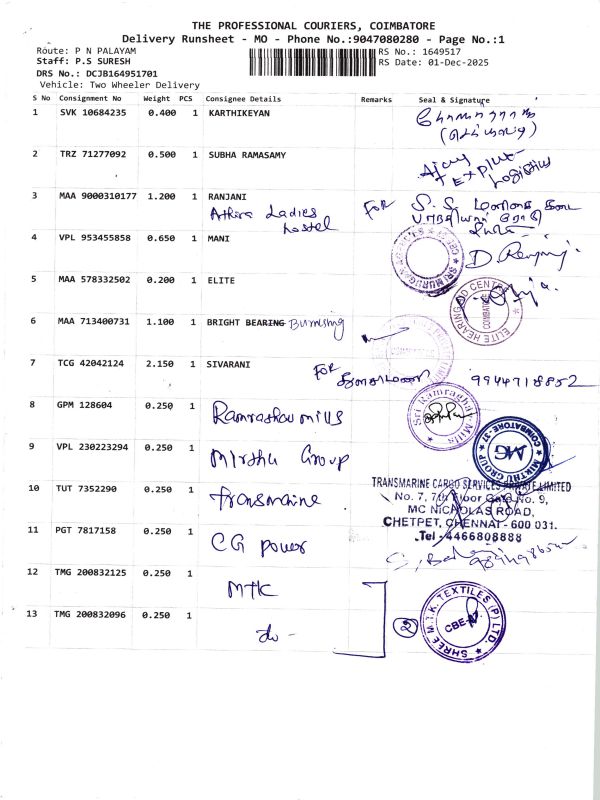 THE PROFESSIONAL COURIERS, COIMBATORE
Delivery Runsheet - MO - Phone No.:9047080280 - Page No.:1
Route: P N PALAYAM
RS No.: 1649517
Staff: P.S SURESH
RS Date: 01-Dec-2025
DRS No.: DCJB164951701
Vehicle: Two Wheeler Delivery
S No Consignment No Weight PCS Consignee Details Remarks Seal & Signature
1 SVK 10684235 0.400 1 KARTHIKEYAN
2 TRZ 71277092 0.500 1 SUBHA RAMASAMY
Logistics
3 MAA 9000310177 1.200 1 RANJANI
Athira Ladies hostel
FOR S. S.
4 VPL 953455858 0.650 1 MANI
SRI MURUGAN
CBE-37
D
5 MAA 578332502 0.200 1 ELITE
ELITE HEARING AID CENTRE
COIMBATORE
6 MAA 713400731 1.100 1 BRIGHT BEARING
7 TCG 42042124 2.150 1 SIVARANI
FOR
9944718852
8 GPM 128604 0.250 1 Ramraghav mills
Sri Ramraghav Mills
9 VPL 230223294 0.250 1 Mirthu Group
MIRTHU GROUP COIMBATORE-37
MG
10 TUT 7352290 0.250 1 Transmarine
TRANSMARINE CARGO SERVICES PRIVATE LIMITED
No. 7, 7th Floor Gate No. 9,
MC NICHOLAS ROAD,
CHETPET, CHENNAI - 600 031.
Tel - 4466808888
11 PGT 7817158 0.250 1 CG power
12 TMG 200832125 0.250 1 MTK
13 TMG 200832096 0.250 1 do -
2
SHREE M.T.K. TEXTILES (P) LTD.
CBE-37